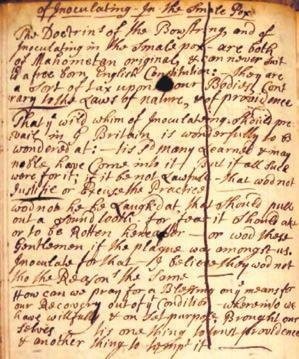 of Inoculating - In the Smale Pox
The Doctrin of the Bowstring, and of
Inoculating in the Smale pox - are both
of Mahometan original, & can never suit
a free born English Constitution: - They are
a Sort of tax upon our Bodies, Cont
rary to the Laws of nature, & of providence
That a wild whim of Inoculating should pre
vail in G Britain is wonderfully to be
wondered at: - tis so many Learned & may
noble, have Come into it, But if all such
were for it; if it be not Lawfull - that wod not
Justifie or Excuse the Practice
wod not he be Laugh'd at that should pull
out a sound tooth - for fear it should ake
or to be Rotten hereafter - or wod these
Gentlemen if the plague was amongst us.
Inoculate for that - I believe they wod not
tho the Reason's the same
How can we pray for a Blessing on means for
our Recovery out of Condition - wherein we
have willfully & on set purpose Brought our
selves tis one thing to trust providence
& another thing to tempt it